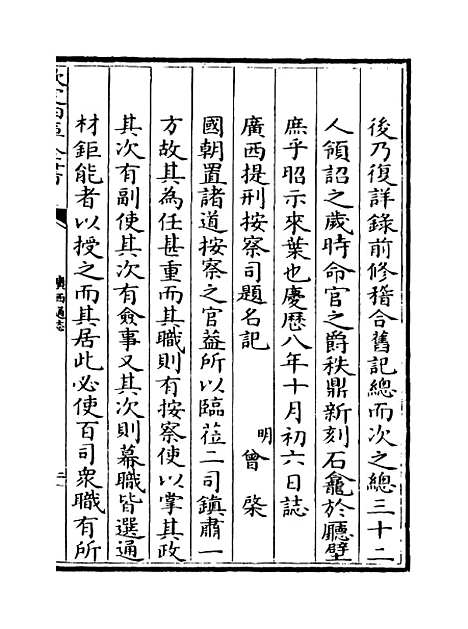 後乃復詳錄前修稽合舊記總而次之總三十二
人領詔之歲時命官之爵秩鼎新刻石龕於廳壁
庶乎昭示來葉也慶歴八年十月初六日誌
廣西提刑按察司題名記
明曾棨
國朝置諸道按察之官葢所以臨莅二司鎮肅一
方故其為任甚重而其職則有按察使以掌其政
其次有副使其次有僉事又其次則幕職皆選通
材鉅能者以授之而其居此必使百司衆職有所
廣西通志